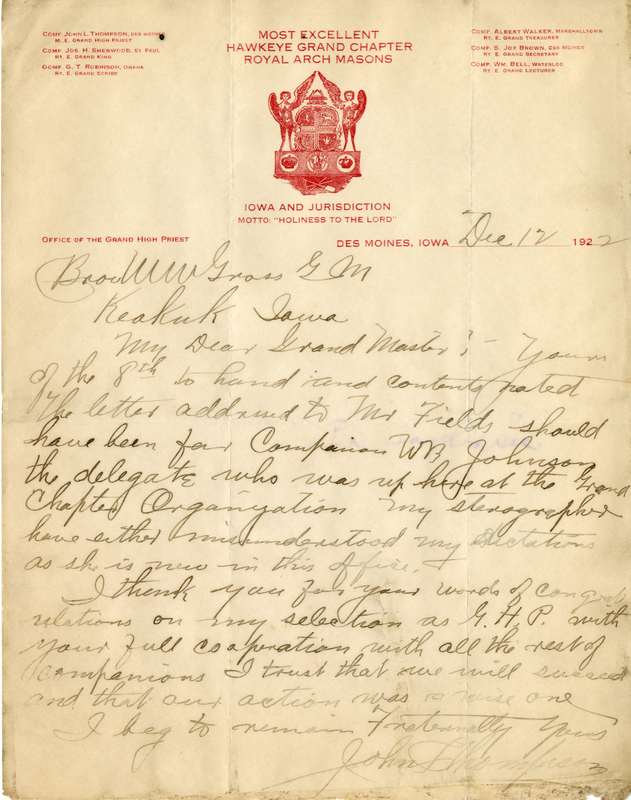 COMP. JOHN L. THOMPSON, DES MOINES
M. E. GRAND HIGH PRIEST
COMP. JOS. H. SHERWOOD, ST. PAUL
RT. E. GRAND KING
COMP. G. T. ROBINSON, OMAHA
RT. E. GRAND SCRIBE
MOST EXCELLENT
HAWKEYE GRAND CHAPTER
ROYAL ARCH MASONS
COMP. ALBERT WALKER, MARSHALLTOWN
RT. E. GRAND TREASURER
COMP. S. JOE BROWN, DES MOINES
RT. E. GRAND SECRETARY
COMP. WM. BELL, WATERLOO
RT. E. GRAND LECTURER
IOWA AND JURISDICTION
MOTTO: "HOLINESS TO THE LORD"
OFFICE OF THE GRAND HIGH PRIEST
DES MOINES, IOWA Dec 12 1922
Bro W W Gross G M
Keokuk Iowa
My Dear Grand Master:- Yours
of the 8th to hand and contents noted
The letter addressed to Mr Fields should
have been for Companion WB Johnson
the delegate who was up here at the Grand
Chapter Organization my stenographer
have either misunderstood my dictations
as she is new in this office.
I thank you for your words of congrat
ulations on my selection as G. H. P. with
your full cooperation with all the rest of
companions I trust that we will succeed
and that our action was a wise one
I beg to remain Fraternally Yours
John L Thompson